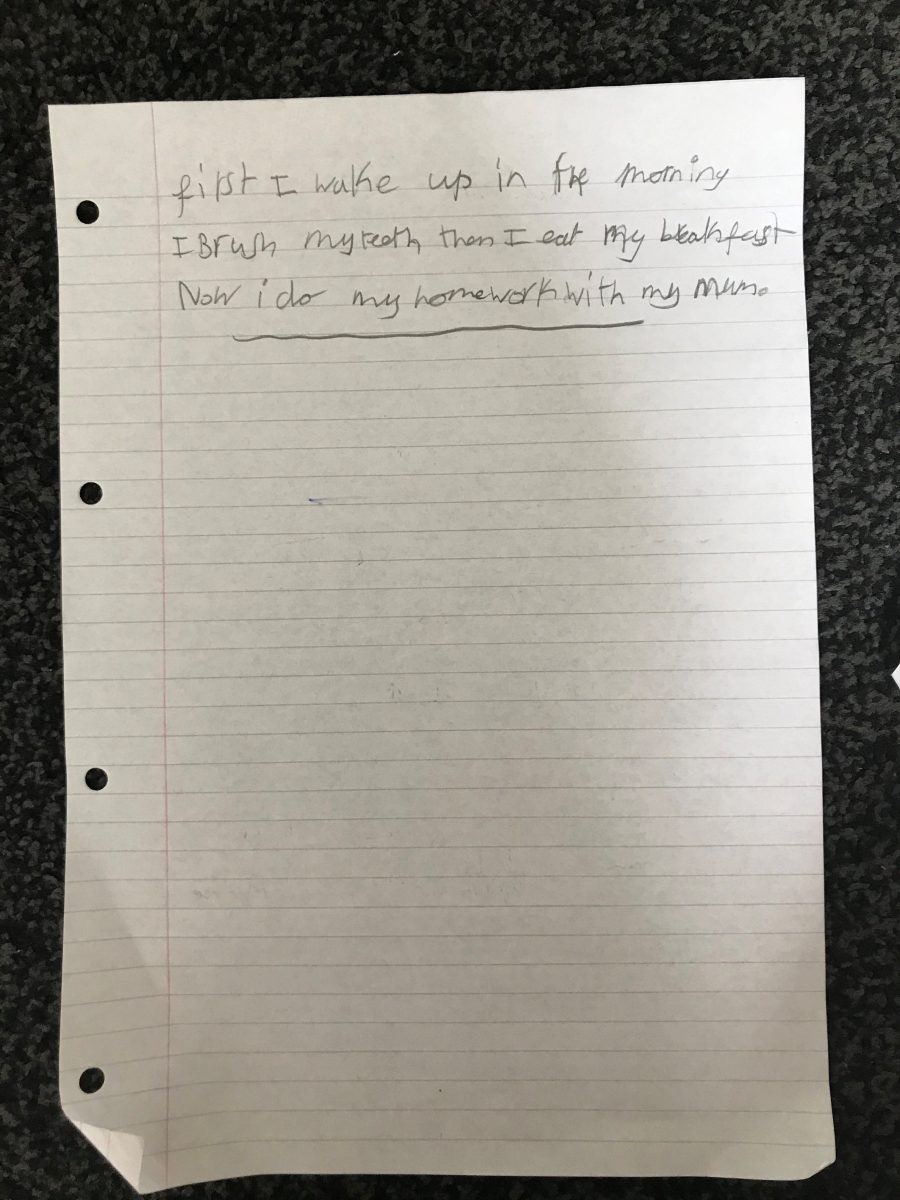 first I wake up in the morning
I Brush my teeth, then I eat my breakfast
Now i do my homework with my mum.